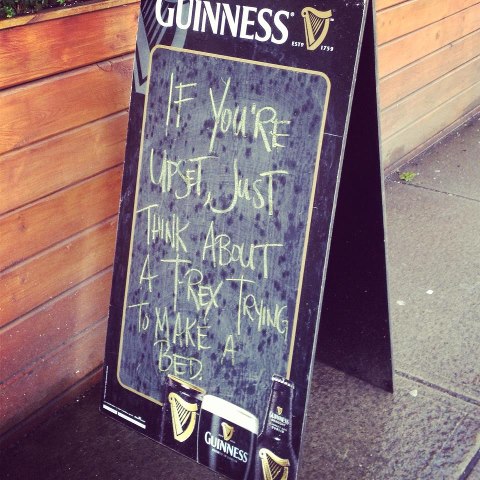 GUINNESS
ESTD 1759
IF YOU'RE
UPSET, JUST
THINK ABOUT
A T-REX TRYING
TO MAKE A
BED.
GUINNESS
GUINNESS